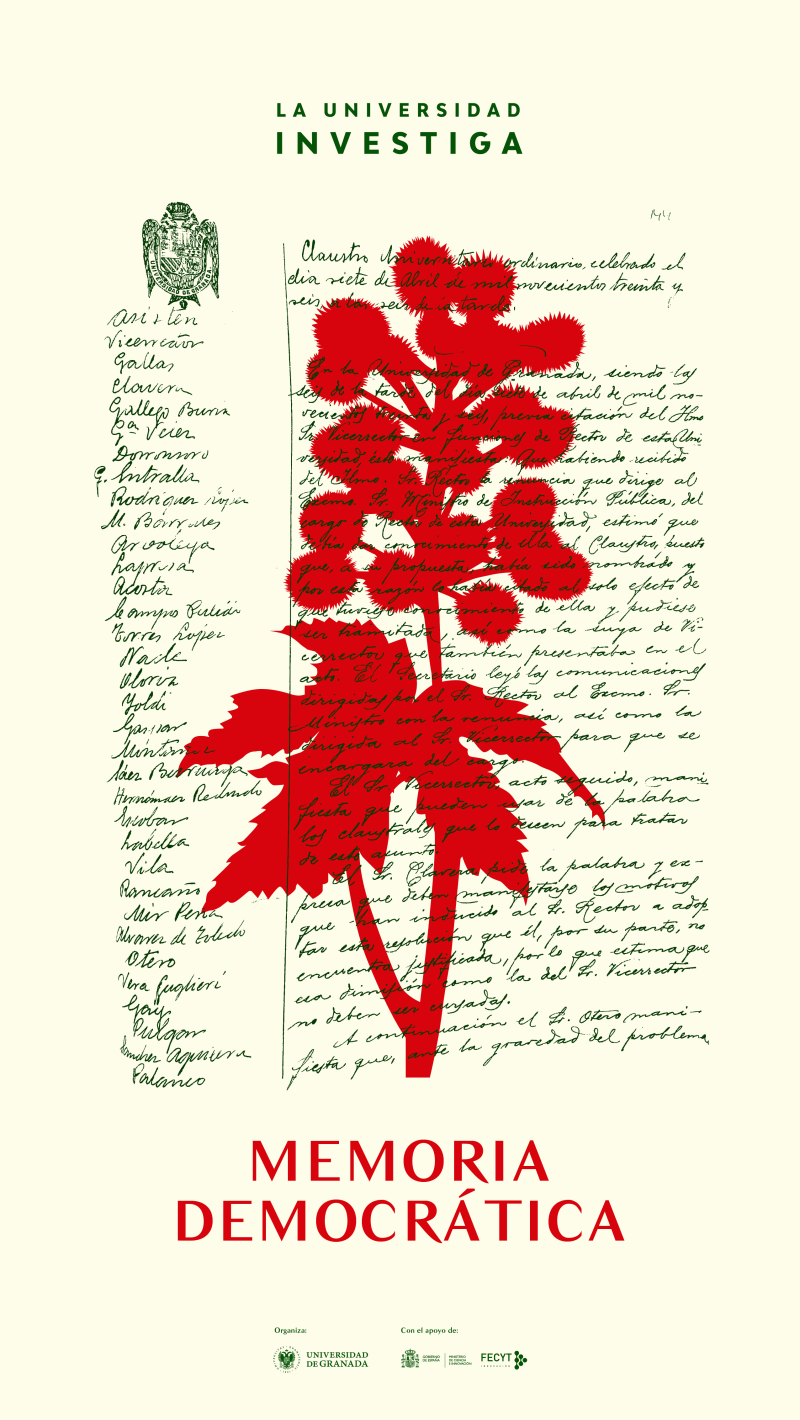 LA UNIVERSIDAD
INVESTIGA
144
UNIVERSIDAD DE GRANADA
Asisten
Vicerrector
Gallas
Clavera
Gallego Burin
Gª Velez
Dominguez
G. Intralla
Rodriguez López
M. Barrales
Lapresa
Acosta
Campos Pulido
Torres López
Nacle
Oloriz
Yoldi
Gassar
Sáez Barruinga
Hernández Redondo
Escobar
Labella
Vila
Rancaño
Mir Peña
Alvarez de Toledo
Otero
Vera Guglieri
Gay
Pulgar
Sanchez Agesta
Palanco
Claustro Universitario ordinario, celebrado el
dia siete de Abril de mil novecientos treinta y
seis a las seis de la tarde.
En la Universidad de Granada, siendo las
seis de la tarde del dia siete de abril de mil no-
vecientos treinta y seis, previa citación del Ilmo
Sr. Vicerrector en funciones de Rector de esta Uni
versidad, éste manifiesta: Que habiendo recibido
del Ilmo. Sr. Rector la renuncia que dirige al
Excmo. Sr. Ministro de Instrucción Pública, del
cargo de Rector de esta Universidad, estimó que
debía dar conocimiento de ella al Claustro, puesto
que, a su propuesta había sido nombrado y
por esta razón lo había citado al solo efecto de
que tuviese conocimiento de ella y pudiese
ser tramitada, así como la suya de Vi-
cerrector que también presentaba en el
acto. El Secretario leyó las comunicaciones
dirigidas por el Sr. Rector al Excmo. Sr.
Ministro con la renuncia, así como la
dirigida al Sr. Vicerrector para que se
encargara del cargo.
El Sr. Vicerrector, acto seguido, mani
fiesta que pueden usar de la palabra
los claustrales que lo deseen para tratar
de este asunto.
El Sr. Clavera pide la palabra y ex-
presa que deben manifestarse los motivos
que han inducido al Sr. Rector a adop
tar esta resolución que él, por su parte, no
encuentra justificada, por lo que estima que
esa dimisión como la del Sr. Vicerrector
no deben ser cursadas.
A continuación el Sr. Otero mani-
fiesta que, ante la gravedad del problema
MEMORIA
DEMOCRÁTICA
Organiza:
Con el apoyo de:
UNIVERSIDAD
DE GRANADA
GOBIERNO
DE ESPAÑA
MINISTERIO
DE CIENCIA
E INNOVACIÓN
FECYT
INNOVACIÓN